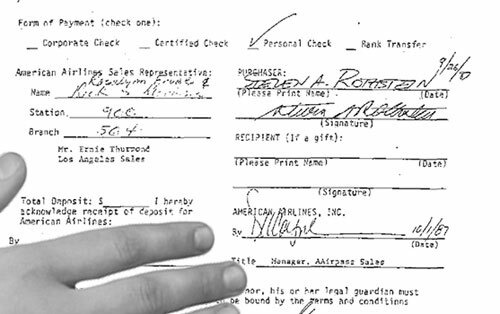 Form of Payment (check one):
Corporate Check Certified Check ✓ Personal Check Bank Transfer
American Airlines Sales Representative:
Name
Station
Branch 564
Mr. Ernie Thurmond
Los Angeles Sales
Total Deposit: $ I hereby
acknowledge receipt of deposit for
American Airlines:
By
PURCHASER:
STEVEN A. ROTHSTEIN
(Please Print Name) (Date)
(Signature)
RECIPIENT (If a gift):
(Please Print Name) (Date)
(Signature)
AMERICAN AIRLINES, INC.
By 10/1/87
(Date)
Title Manager, AAirpass Sales
nor, his or her legal guardian must
be bound by the terms and conditions